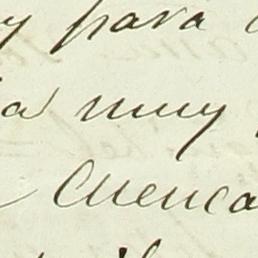 y para
a muy
Cuenca